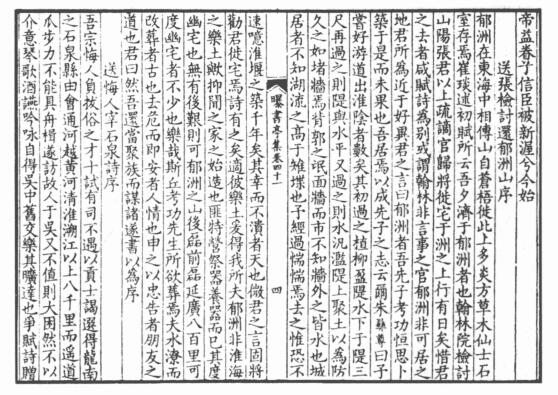 帝益眷了信臣被新渥兮今始
送張檢討還郁洲山序
郁洲在東海中相傳山自蒼梧徙此上多炎方草木仙士石
室存焉崔琰述初賦所云吾夕濟于郁洲者也翰林院檢討
山陽張君以上疏謫官歸將徙宅于洲之上行有日矣惜君
之去者咸賦詩為別或謂翰林非言事之官郁洲非可居之
地君所為近于好異君之言曰郁洲者吾先子考功恒思卜
築于是而未果也吾居焉以成先子之志云爾朱彝尊曰子
嘗好游道出淮陰者數矣其初過之植柳盈隄水下于隄三
尺再過之則隄與水平又過之則水汎濫隄上聚土以為防
久之如堵牆焉背郭之氓面牆而市不知牆外之皆水也城
居者不知湖流之高于雉堞也予經過惴惴焉去之惟恐不
曝書亭集卷四十一 四
速噫淮堰之築千年矣其幸而不潰者天也微君之言固將
勸君徙宅焉詩有之矣適彼樂土爰得我所夫郁洲非淮海
之樂土歟抑聞之家之始造也匪特營祭器養器而已其度
幽宅也無有後艱則可郁洲之山後磊前磊延廣八百里可
度幽宅者不少也樂哉斯丘考功先生所欲葬焉夫水潦而
改葬者古也去危而即安者人情也申之以忠告者朋友之
道也君曰然吾還當聚族而謀諸遂書以為序
送悔人宰石泉詩序
吾宗悔人負拔俗之才十試有司不遇以貢士謁選得龍南
之石泉縣由會通河越黃河清淮溯江以上八千里而遙道
瓜步力不能具舟楫遂訪故人于吳又不值則大困然不以
介意琴歌酒讌吟咏自得吳中舊交樂其曠達也爭賦詩贈